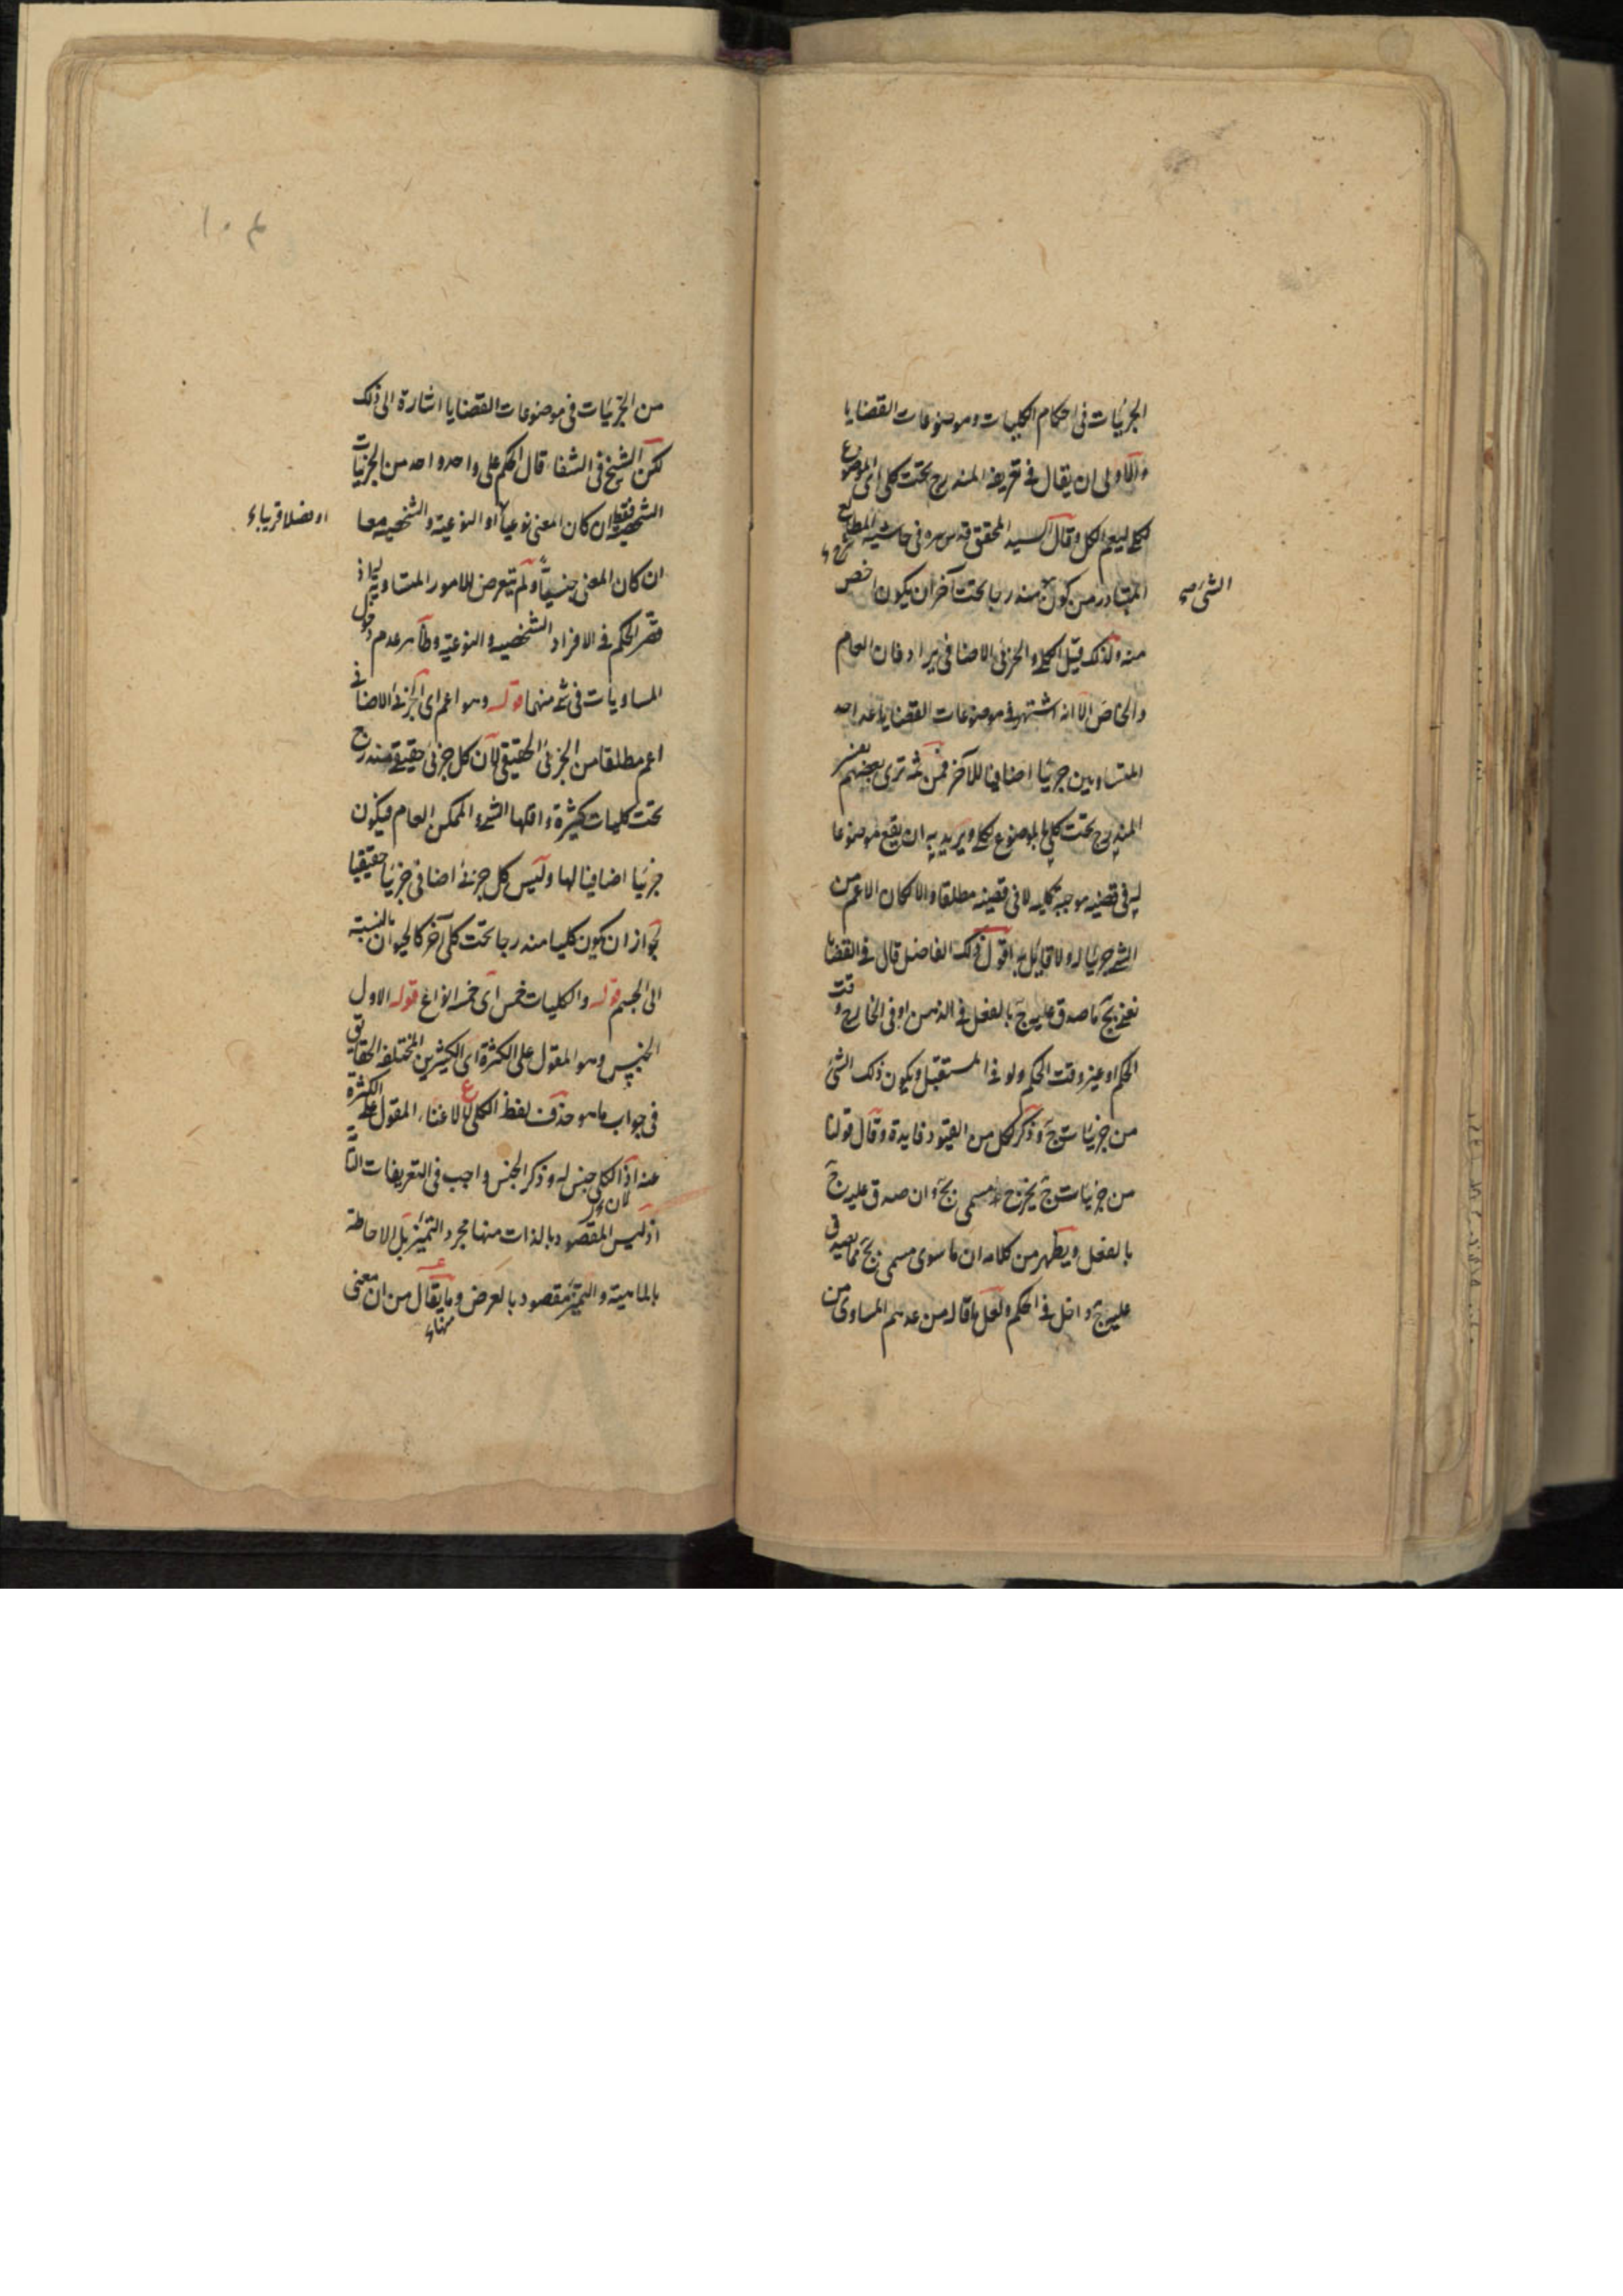 الجزئيات فى احكام الكليات وموضوعات القضايا
والاولى ان يقال فى تعريفه المندرج تحت كلى اى الموضوع
لكلى ليعم الكل وقال السيد المحقق قدس سره فى حاشية المطالع
المتبادر من كون مندرجا تحت آخر ان يكون اخص
الشئ صح
منه ولذلك قيل الكلى والجزئى الاضافى يرادفان العام
والخاص الا انه اشتهر فى موضوعات القضايا عد احد
المتساويين جزئيا اضافيا للآخر فمن ثمه ترى بعضهم يفسر
المندرج تحت كلى بالموضوع لكلى ويريد به ان يقع موضوعا
له فى قضية موجبة كلية لا فى قضية مطلقا والا لكان الاعم من
الشئ جزئيا له ولا قايل به اقول ذلك الفاضل قال فى القضايا
نعنى بج ما صدق عليه ج بالفعل فى الذهن او فى الخارج وقت
الحكم او غير وقت الحكم ولو فى المستقبل ويكون ذلك الشئ
من جزئيات ج وذكر لكل من القيود فايدة وقال قولنا
من جزئيات ج يخرج مسمى بج وان صدق عليه ج
بالفعل ويظهر من كلامه ان ما سوى مسمى بج مما يصدق
عليه ج داخل فى الحكم ولعل ما قاله من عدهم المساوى من
١٠٤
من الجزئيات فى موضوعات القضايا اشارة الى ذلك
لكن الشيخ فى الشفا قال الحكم على واحد واحد من الجزئيات
الشخصية فقط ان كان المعنى نوعيا او النوعية والشخصية معا
او فصلا قريبا
ان كان المعنى جنسيا ولم يتعرض للامور المتساوية
فقصر الحكم فى الافراد الشخصية والنوعية وظاهر عدم دخول
المساويات فى شئ منهما قوله وهو اعم اى الجزئى الاضافى
اعم مطلقا من الجزئى الحقيقى لان كل جزئى حقيقى مندرج
تحت كليات كثيرة واقلها الشئ والممكن العام فيكون
جزئيا اضافيا لها وليس كل جزئى اضافى جزئيا حقيقيا
لجواز ان يكون كليا مندرجا تحت كلى آخر كالحيوان بالنسبة
الى الجسم قوله والكليات خمس اى خمسة انواع قوله الاول
الجنس وهو المقول على الكثرة اى الكثيرين المختلفة الحقايق
فى جواب ما هو حذف لفظ الكلى لاغناء المقول على الكثرة
عنه اذ الكلى جنس له وذكر الجنس واجب فى التعريفات التامة
اذ ليس المقصود بالذات منها مجرد التميز بل الاحاطة
بالماهية والتميز مقصود بالعرض وما يقال من ان معنى